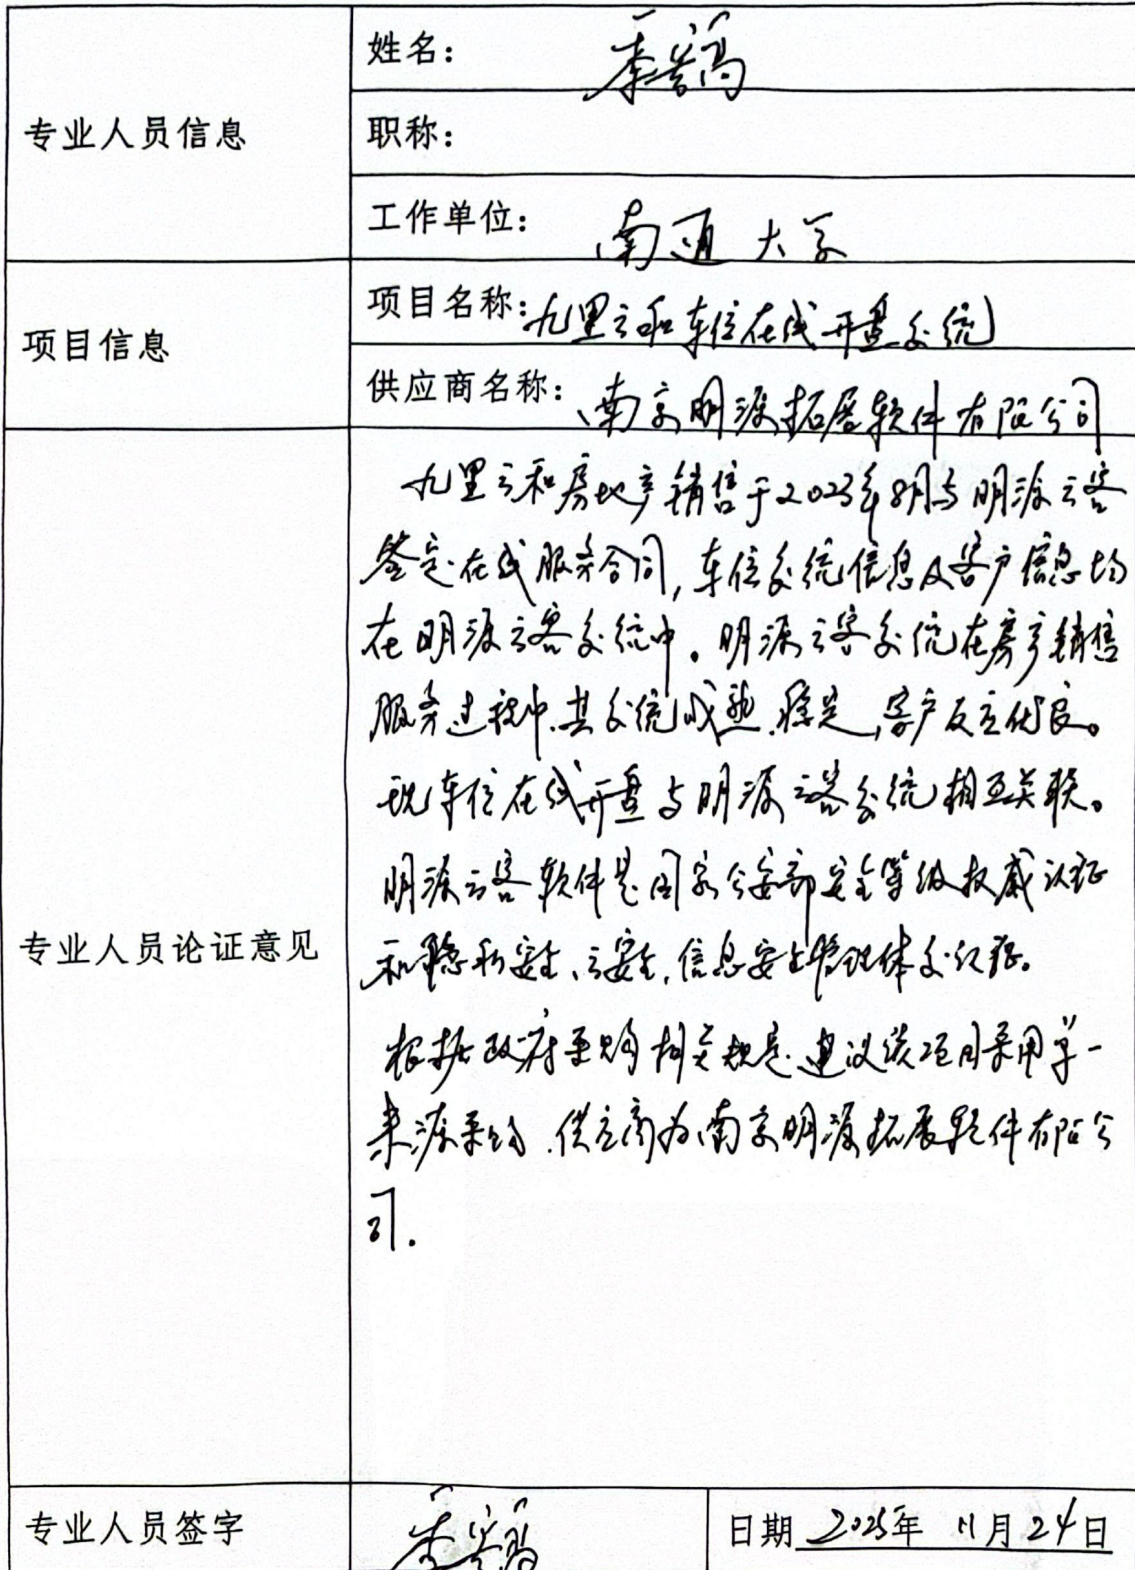 专业人员信息
姓名：
职称：
工作单位：南通大学
项目信息
项目名称：九里云和车位在线开盘系统
供应商名称：南京明源拓展软件有限公司
专业人员论证意见
九里云和房地产销售于2023年8月与明源云客
签定在线服务合同，车位系统信息及客户信息均
在明源云客系统中。明源云客系统在房产销售
服务过程中，其系统成熟、稳定，客户反应优良。
现车位在线开盘与明源云客系统相互关联。
明源云客软件是国家公安部安全等级权威认证
和隐私安全、云安全，信息安全管理体系认证。
根据政府采购相关规定，建议该项目采用单一
来源采购，供应商为南京明源拓展软件有限公
司.
专业人员签字
日期 2025年 11月24日